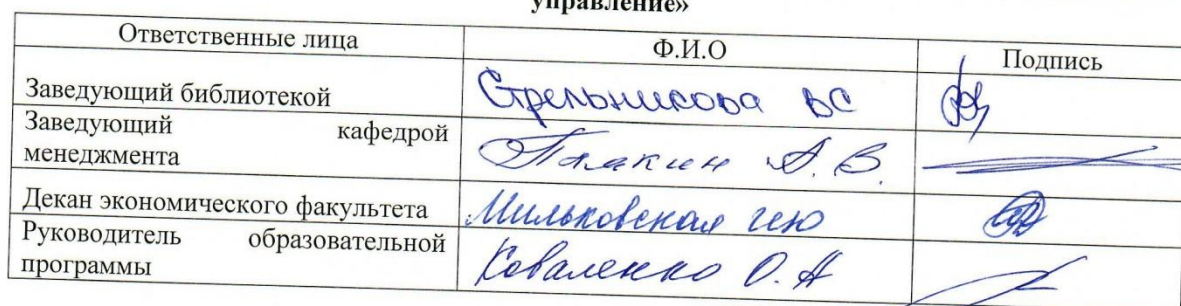 управление»
Ответственные лица Ф.И.О Подпись
Заведующий библиотекой Стрельникова ВС
Заведующий кафедрой
менеджмента А. В.
Декан экономического факультета Мильковская
Руководитель образовательной
программы Коваленко О. А